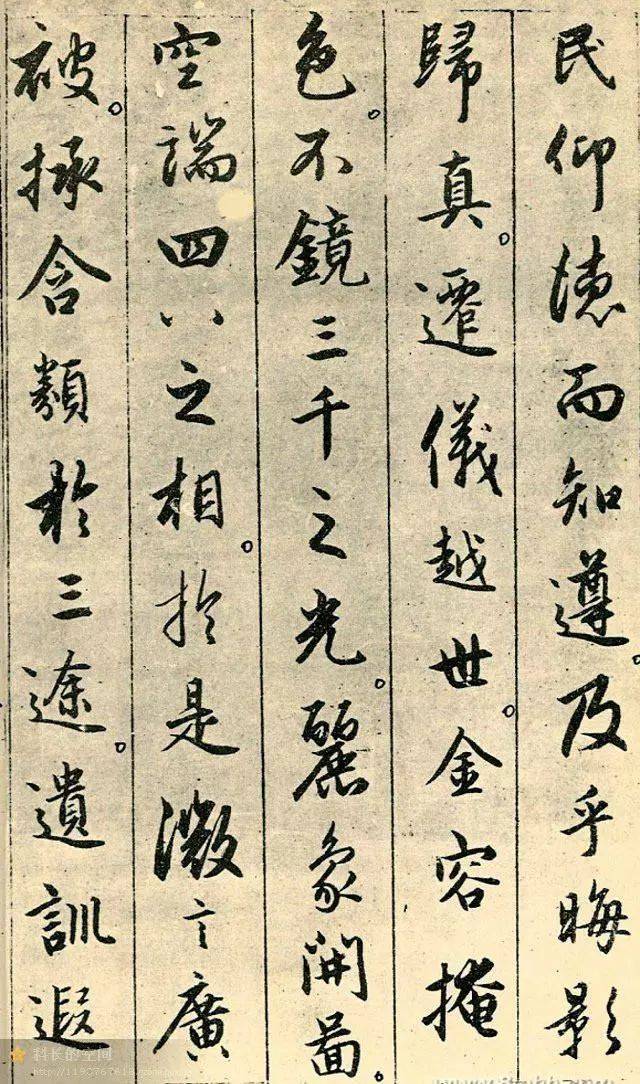 民仰徳而知遵。及乎晦影
歸真。遷儀越世。金容掩
色。不鏡三千之光。麗象開圖。
空端四八之相。於是微言廣
被。拯含類於三途。遺訓遐
科长的空间